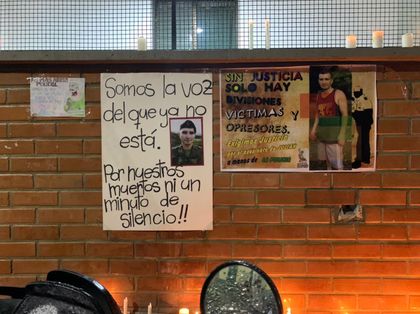 Somos la voz
del que ya no
está.
Por nuestros
muertos ni un
minuto de
silencio!!
SIN JUSTICIA
SOLO HAY
DIVISIONES
VICTIMAS Y
OPRESORES.
exigimos Justicia
a manos de